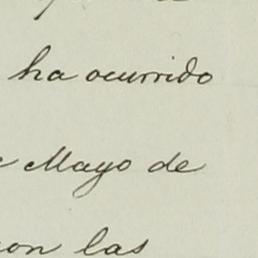 ha ocurrido
Mayo de
las